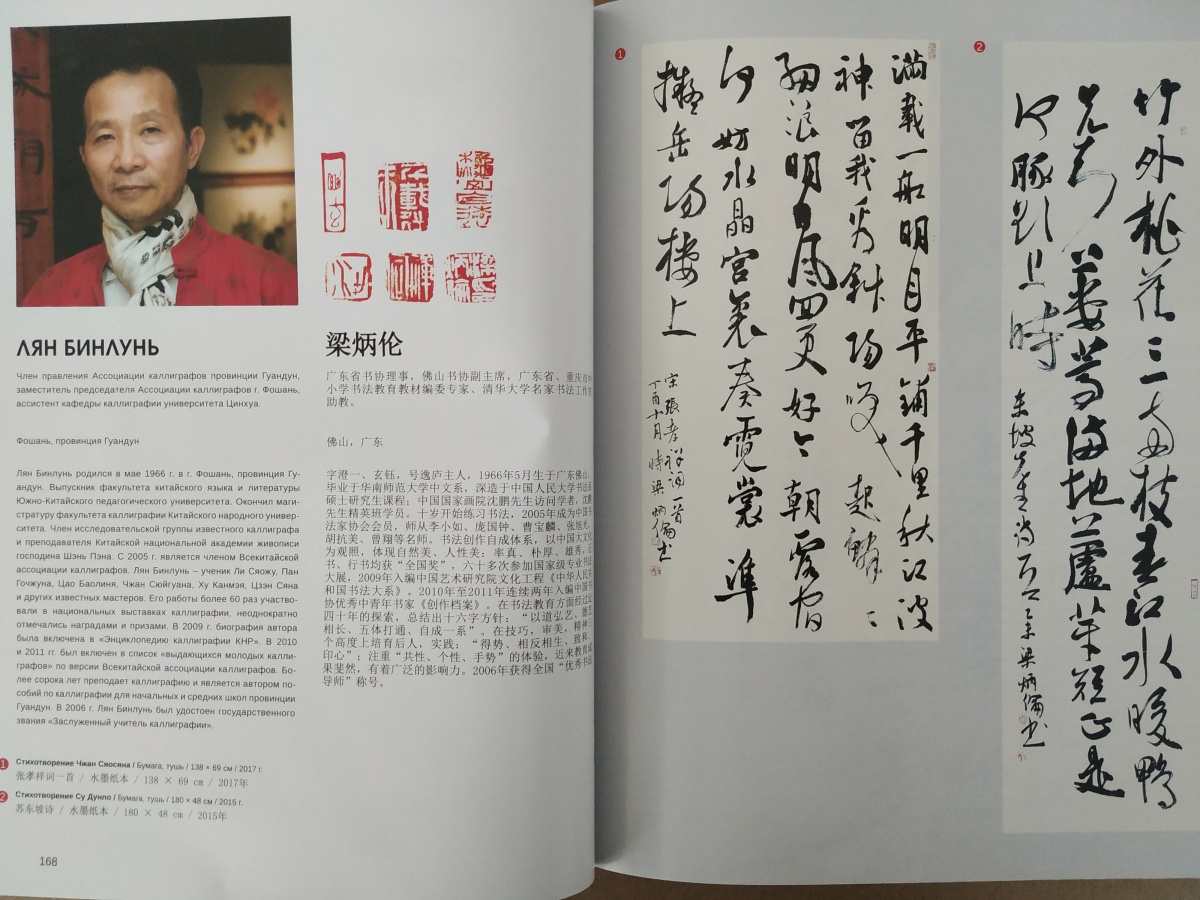 ЛЯН БИНЛУНЬ
Член правления Ассоциации каллиграфов провинции Гуандун,
заместитель председателя Ассоциации каллиграфов г. Фошань,
ассистент кафедры каллиграфии университета Цинхуа.
Фошань, провинция Гуандун
Лян Бинлунь родился в мае 1966 г. в г. Фошань, провинция Гу-
андун. Выпускник факультета китайского языка и литературы
Южно-Китайского педагогического университета. Окончил маги-
стратуру факультета каллиграфии Китайского народного универ-
ситета. Член исследовательской группы известного каллиграфа
и преподавателя Китайской национальной академии живописи
господина Шэнь Пэна. С 2005 г. является членом Всекитайской
ассоциации каллиграфов. Лян Бинлунь – ученик Ли Сяожу, Пан
Гочжуна, Цао Баолиня, Чжан Сюйгуана, Ху Канмэя, Цзэн Сяна
и других известных мастеров. Его работы более 60 раз участво-
вали в национальных выставках каллиграфии, неоднократно
отмечались наградами и призами. В 2009 г. биография автора
была включена в «Энциклопедию каллиграфии КНР». В 2010
и 2011 гг. был включен в список «выдающихся молодых калли-
графов» по версии Всекитайской ассоциации каллиграфов. Бо-
лее сорока лет преподает каллиграфию и является автором по-
собий по каллиграфии для начальных и средних школ провинции
Гуандун. В 2006 г. Лян Бинлунь был удостоен государственного
звания «Заслуженный учитель каллиграфии».
梁炳伦
广东省书协理事，佛山书协副主席，广东省、重庆市中
小学书法教育教材编委专家、清华大学名家书法工作室
助教。
佛山，广东
字澄一、玄钰，号逸庐主人，1966年5月生于广东佛山，
毕业于华南师范大学中文系，深造于中国人民大学书法系
硕士研究生课程；中国国家画院沈鹏先生访问学者，沈鹏
先生精英班学员。十岁开始练习书法，2005年成为中国书
法家协会会员，师从李小如、庞国钟、曹宝麟、张旭光、
胡抗美、曾翔等名师。书法创作自成体系，以中国大文化
为观照，体现自然美、人性美：率真、朴厚、雄秀，
书、行书均获“全国奖”，六十多次参加国家级专业书法
大展，2009年入编中国艺术研究院文化工程《中华人民共
和国书法大系》。2010年至2011年连续两年入编中国书
协优秀中青年书家《创作档案》。在书法教育方面经过近
四十年的探索，总结出十六字方针：“以道弘艺、德艺
相长、五体打通、自成一系”。在技巧，审美，精神三
个高度上培育后人，实践：“得势、相反相生、致和、
印心”；注重“共性、个性、手势”的体验，近来教育成
果斐然，有着广泛的影响力。2006年获得全国“优秀书法
导师”称号。
1 Стихотворение Чжан Сяосяна / Бумага, тушь / 138 × 69 см / 2017 г.
张孝祥词一首 / 水墨纸本 / 138 × 69 cm / 2017年
2 Стихотворение Су Дунпо / Бумага, тушь / 180 × 48 см / 2015 г.
苏东坡诗 / 水墨纸本 / 180 × 48 cm / 2015年
168
1
满载一船明月平铺千里秋江波
神留我看斜阳唤起鳞々
细浪明日风回更好今朝露宿
何妨水晶宫里奏霓裳准
拟岳阳楼上
宋張孝祥词一首
丁酉十月時梁炳倫书
2
竹外桃花三两枝春江水暖鸭
先知蒌蒿满地蘆芽短正是
河豚欲上時
东坡先生诗
梁炳倫书